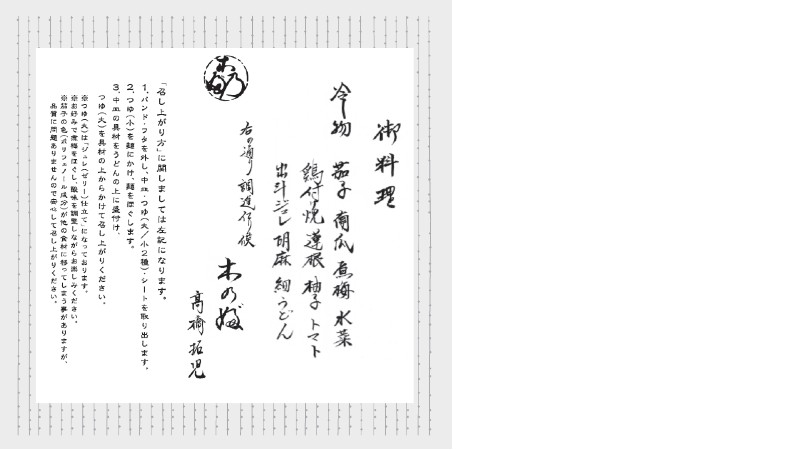 御料理
冷物 茄子 南瓜 煮梅 水菜
鶏付け焼 蓮根 柚子 トマト
出汁ジュレ 胡麻 細うどん
右の通り調進仕り候
木乃婦
木乃婦
髙橋拓児
「召し上がり方」に関しましては左記になります。
1. バンド・フタを外し、中皿・つゆ(大/小2種)・シートを取り出します。
2. つゆ(小)を麺にかけ、麺をほぐします。
3. 中皿の具材をうどんの上に盛付け、
つゆ(大)を具材の上からかけて召し上がりください。
※つゆ(大)は「ジュレ(ゼリー)仕立て」になっております。
※お好みで煮梅をほぐし、酸味を調整しながらお楽しみください。
※茄子の色(ポリフェノール成分)が他の食材に移ってしまう事がありますが、
品質に問題ありませんので安心して召し上がりください。